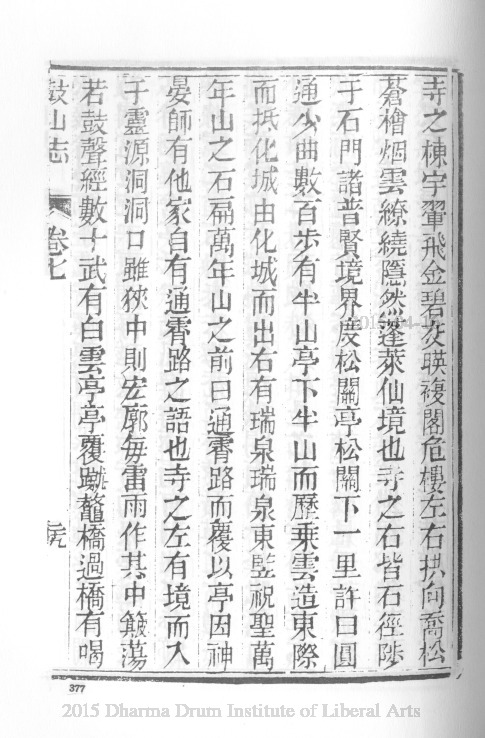 寺之棟宇翬飛金碧交暎複閣危樓左右拱向喬松
蒼檜烟雲繚繞隱然蓬萊仙境也寺之右皆石徑陟
于石門諸普賢境界度松關亭松關下一里許曰圓
通少曲數百步有半山亭下半山而歷乘雲造東際
而抵化城由化城而出右有瑞泉瑞泉東監祝聖萬
年山之石扁萬年山之前曰通霄路而覆以亭因神
晏師有他家自有通霄路之語也寺之左有境而入
于靈源洞洞口雖狹中則宏廓每雷雨作其中簸蕩
若鼓聲經數十武有白雲亭亭覆蹴鼇橋過橋有喝
鼓山志
卷七
377
2015 Dharma Drum Institute of Liberal Arts